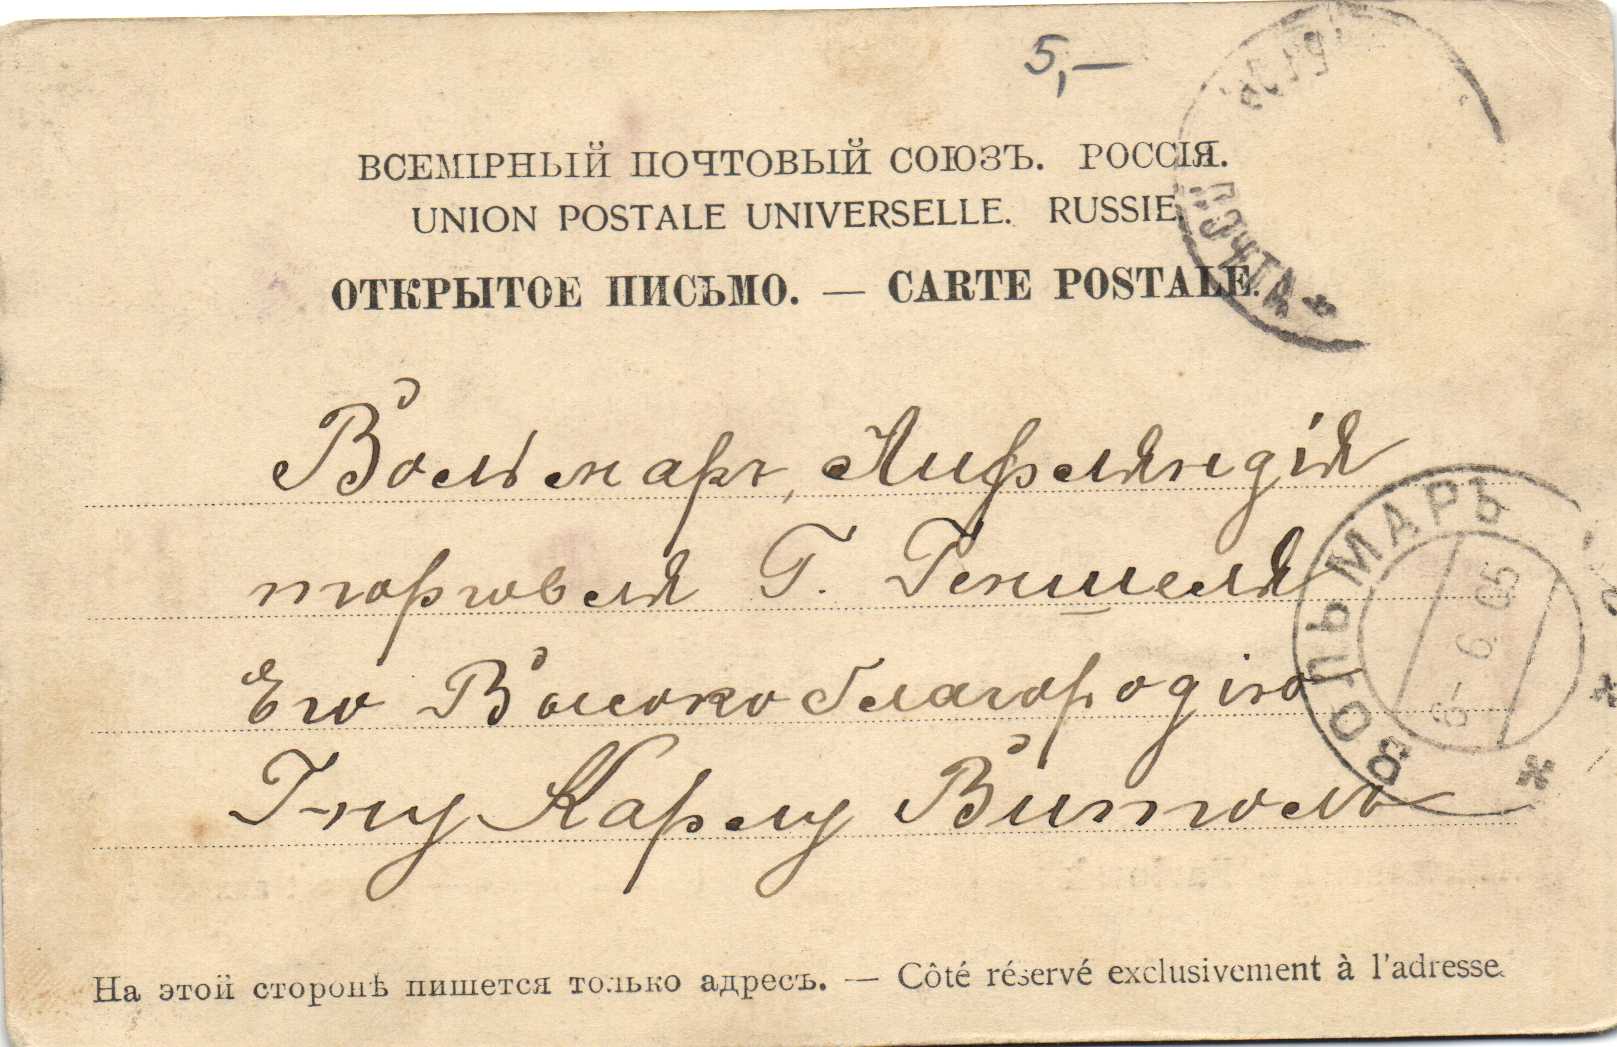 5,—
ВСЕМІРНЫЙ ПОЧТОВЫЙ СОЮЗЪ. РОССІЯ.
UNION POSTALE UNIVERSELLE. RUSSIE.
ОТКРЫТОЕ ПИСЬМО. — CARTE POSTALE.
ПОЧТА
Вольмаръ, Лифляндія
торговля Г. Геншеля
Его Высокоблагородію
Г-ну Карлу Витоль
ВОЛЬМАРЪ
6 - 6. 05
На этой сторонѣ пишется только адресъ. — Côté réservé exclusivement à l'adresse.